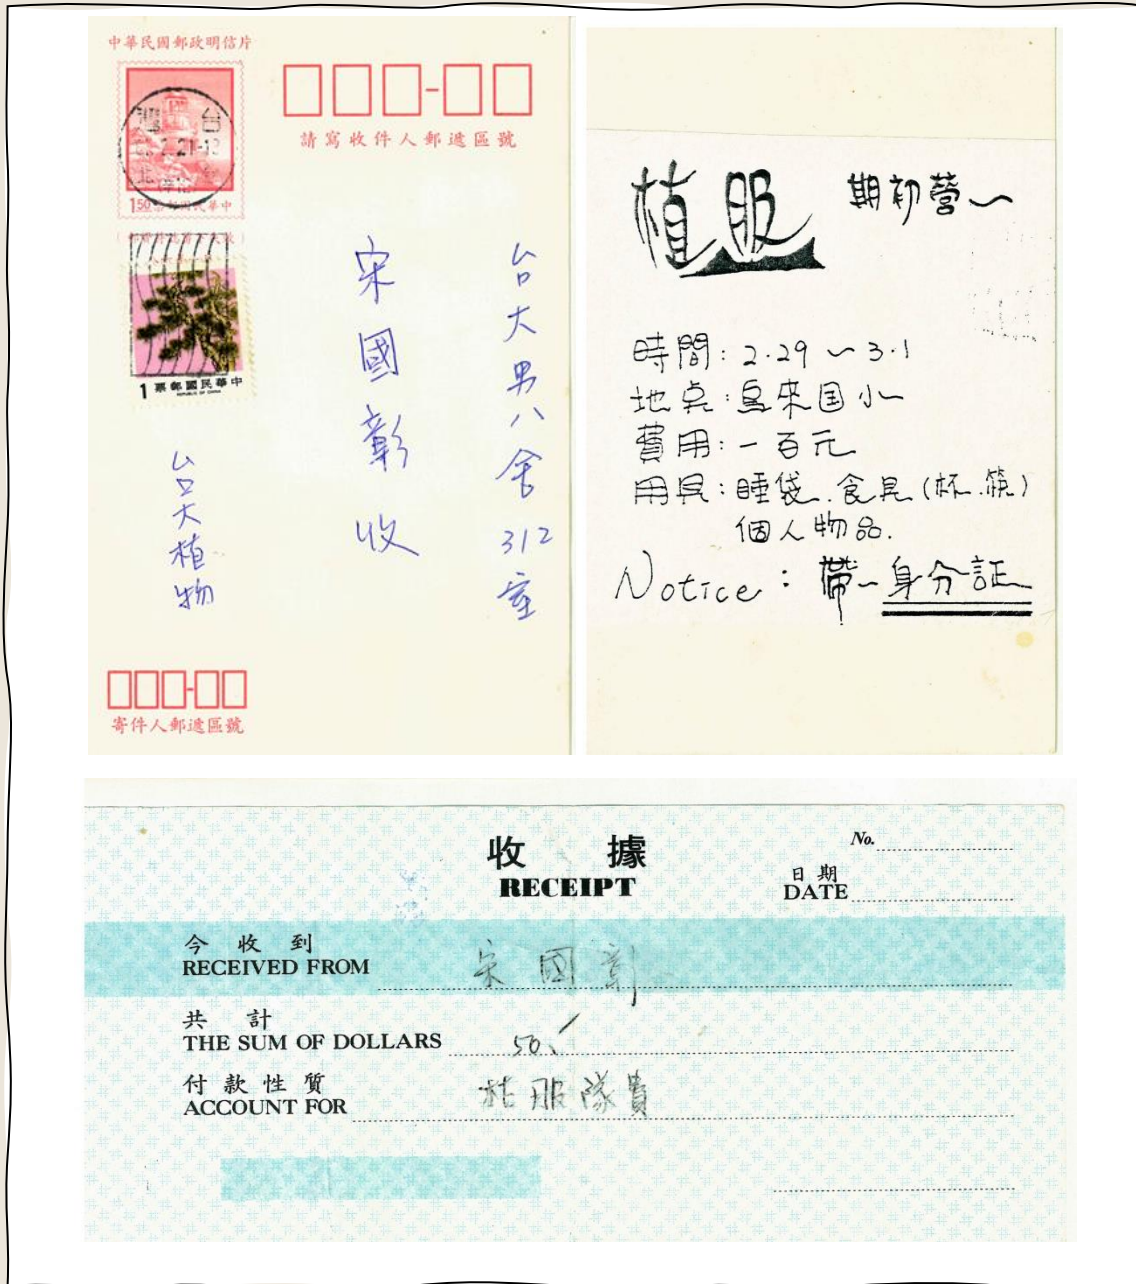 中華民國郵政明信片
請寫收件人郵遞區號
台灣
北
150
中華民國郵票
1
中華民國郵票
REPUBLIC OF CHINA
台大男八舍312室
宋國彰 收
台大植物
寄件人郵遞區號
植服 期初營~
時間:2.29~3.1
地点:烏來国小
費用:一百元
用具:睡袋.食具(杯.筷)
個人物品.
Notice:帶~身分証
收據
RECEIPT
No.
日期
DATE
今收到
RECEIVED FROM
宋國彰
共計
THE SUM OF DOLLARS
50.
付款性質
ACCOUNT FOR
植服隊費